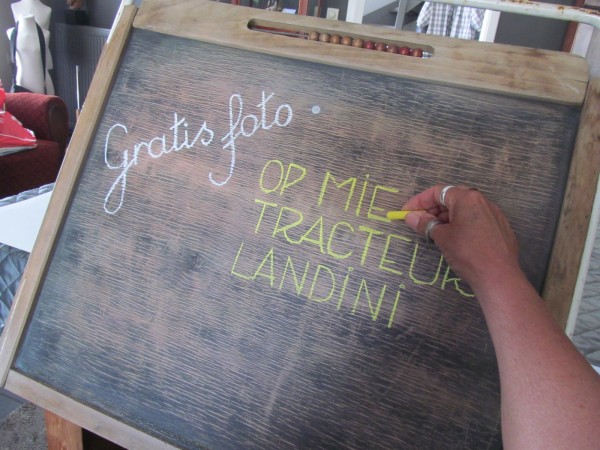 Gratis foto
OP MIE
TRACTEUR
LANDINI